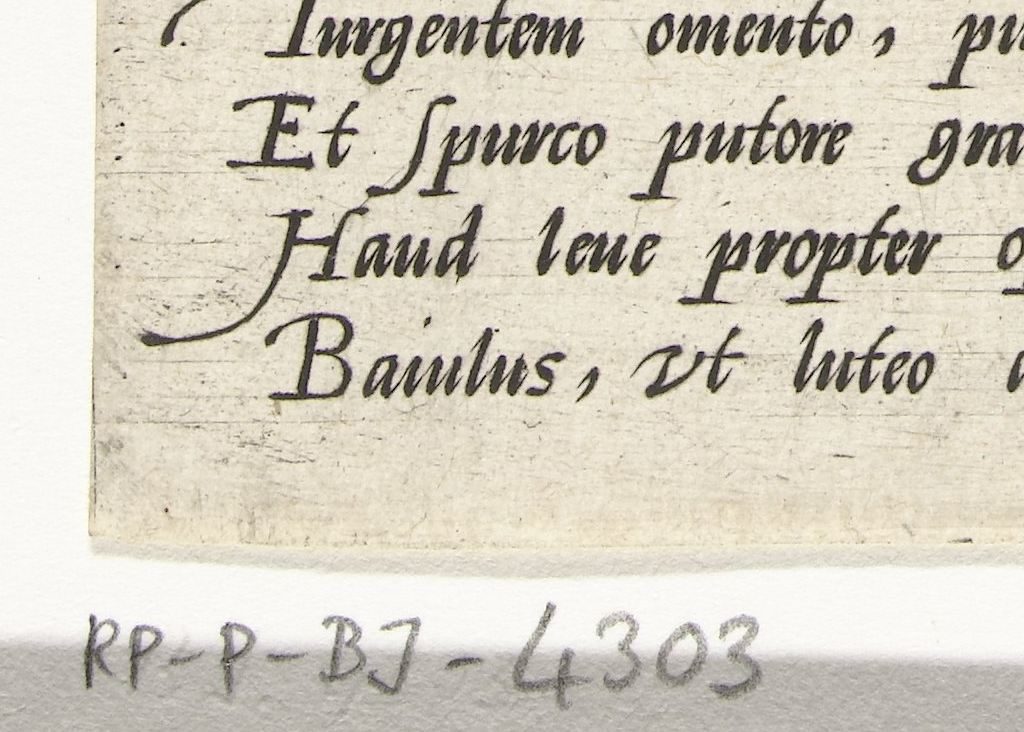 Turgentem omento,
Et ſpurco putore
Haud leue propter
Baiulus, vt luteo
RP-P-BJ-4303